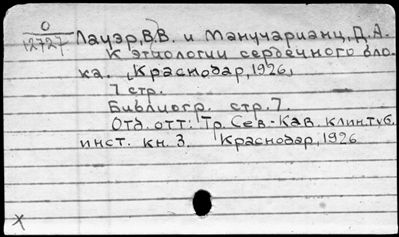 О
12727
Лауэр, В.В. и Манучарианц, Д.А.
К этиологии сердечного бло-
ка. Краснодар, 1926,
7 стр.
Библиогр. стр. 7.
Отд. отт: Тр. Сев.-Кав. клин. туб.
инст. кн. 3. Краснодар, 1926
X